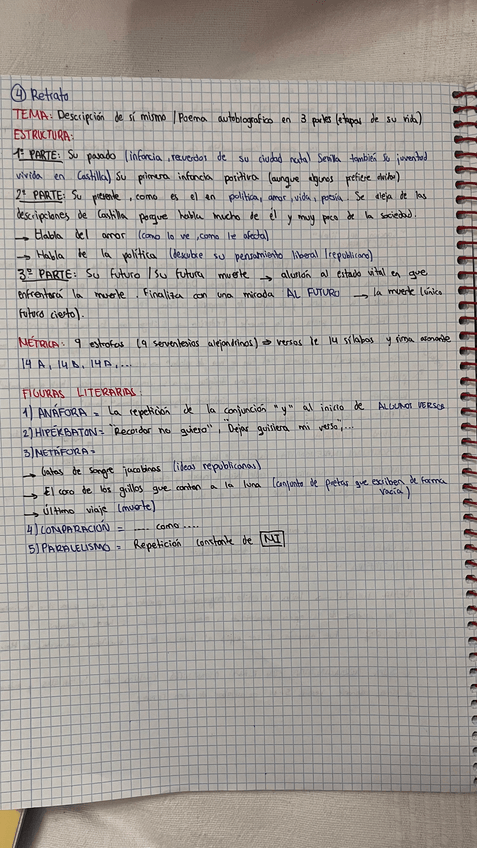 ④ Retrato
TEMA: Descripción de sí mismo / Poema autobiografico en 3 partes (etapas de su vida)
ESTRUCTURA:
1ª PARTE: Su pasado (infancia, recuerdos de su ciudad natal Sevilla también su juventud
vivida en Castilla) Su primera infancia positiva (aunque algunos prefiere olvidar)
2ª PARTE: Su presente, como es el en politica, amor, vida, poesía. Se aleja de las
descripciones de Castilla porque habla mucho de él y muy poco de la sociedad.
→ Habla del amor (como lo ve, como le afecta)
→ Habla de la política (descubre su pensamiento liberal (republicano)
3ª PARTE: Su futuro / su futura muerte → alusión al estado vital en que
enfrentará la muerte. Finaliza con una mirada AL FUTURO → la muerte (único
futuro cierto).
MÉTRICA: 9 estrofas (9 serventesios alejandrinos) → versos de 14 sílabas y rima asonante
14 A, 14 B, 14 A, ...
FIGURAS LITERARIAS:
1) ANÁFORA = La repetición de la conjunción "y" al inicio de ALGUNOS VERSOS
2) HIPÉRBATON = "Recordar no quiero", "Dejar quisiera mi verso, ...
3) METÁFORA =
→ Gotas de sangre jacobinas (ideas republicanas)
→ El coro de los grillos que cantan a la luna (conjunto de poetas que escriben de forma
vacía)
→ Último viaje (muerte)
4) COMPARACIÓN = .... como ....
5) PARALELISMO = Repetición constante de MI